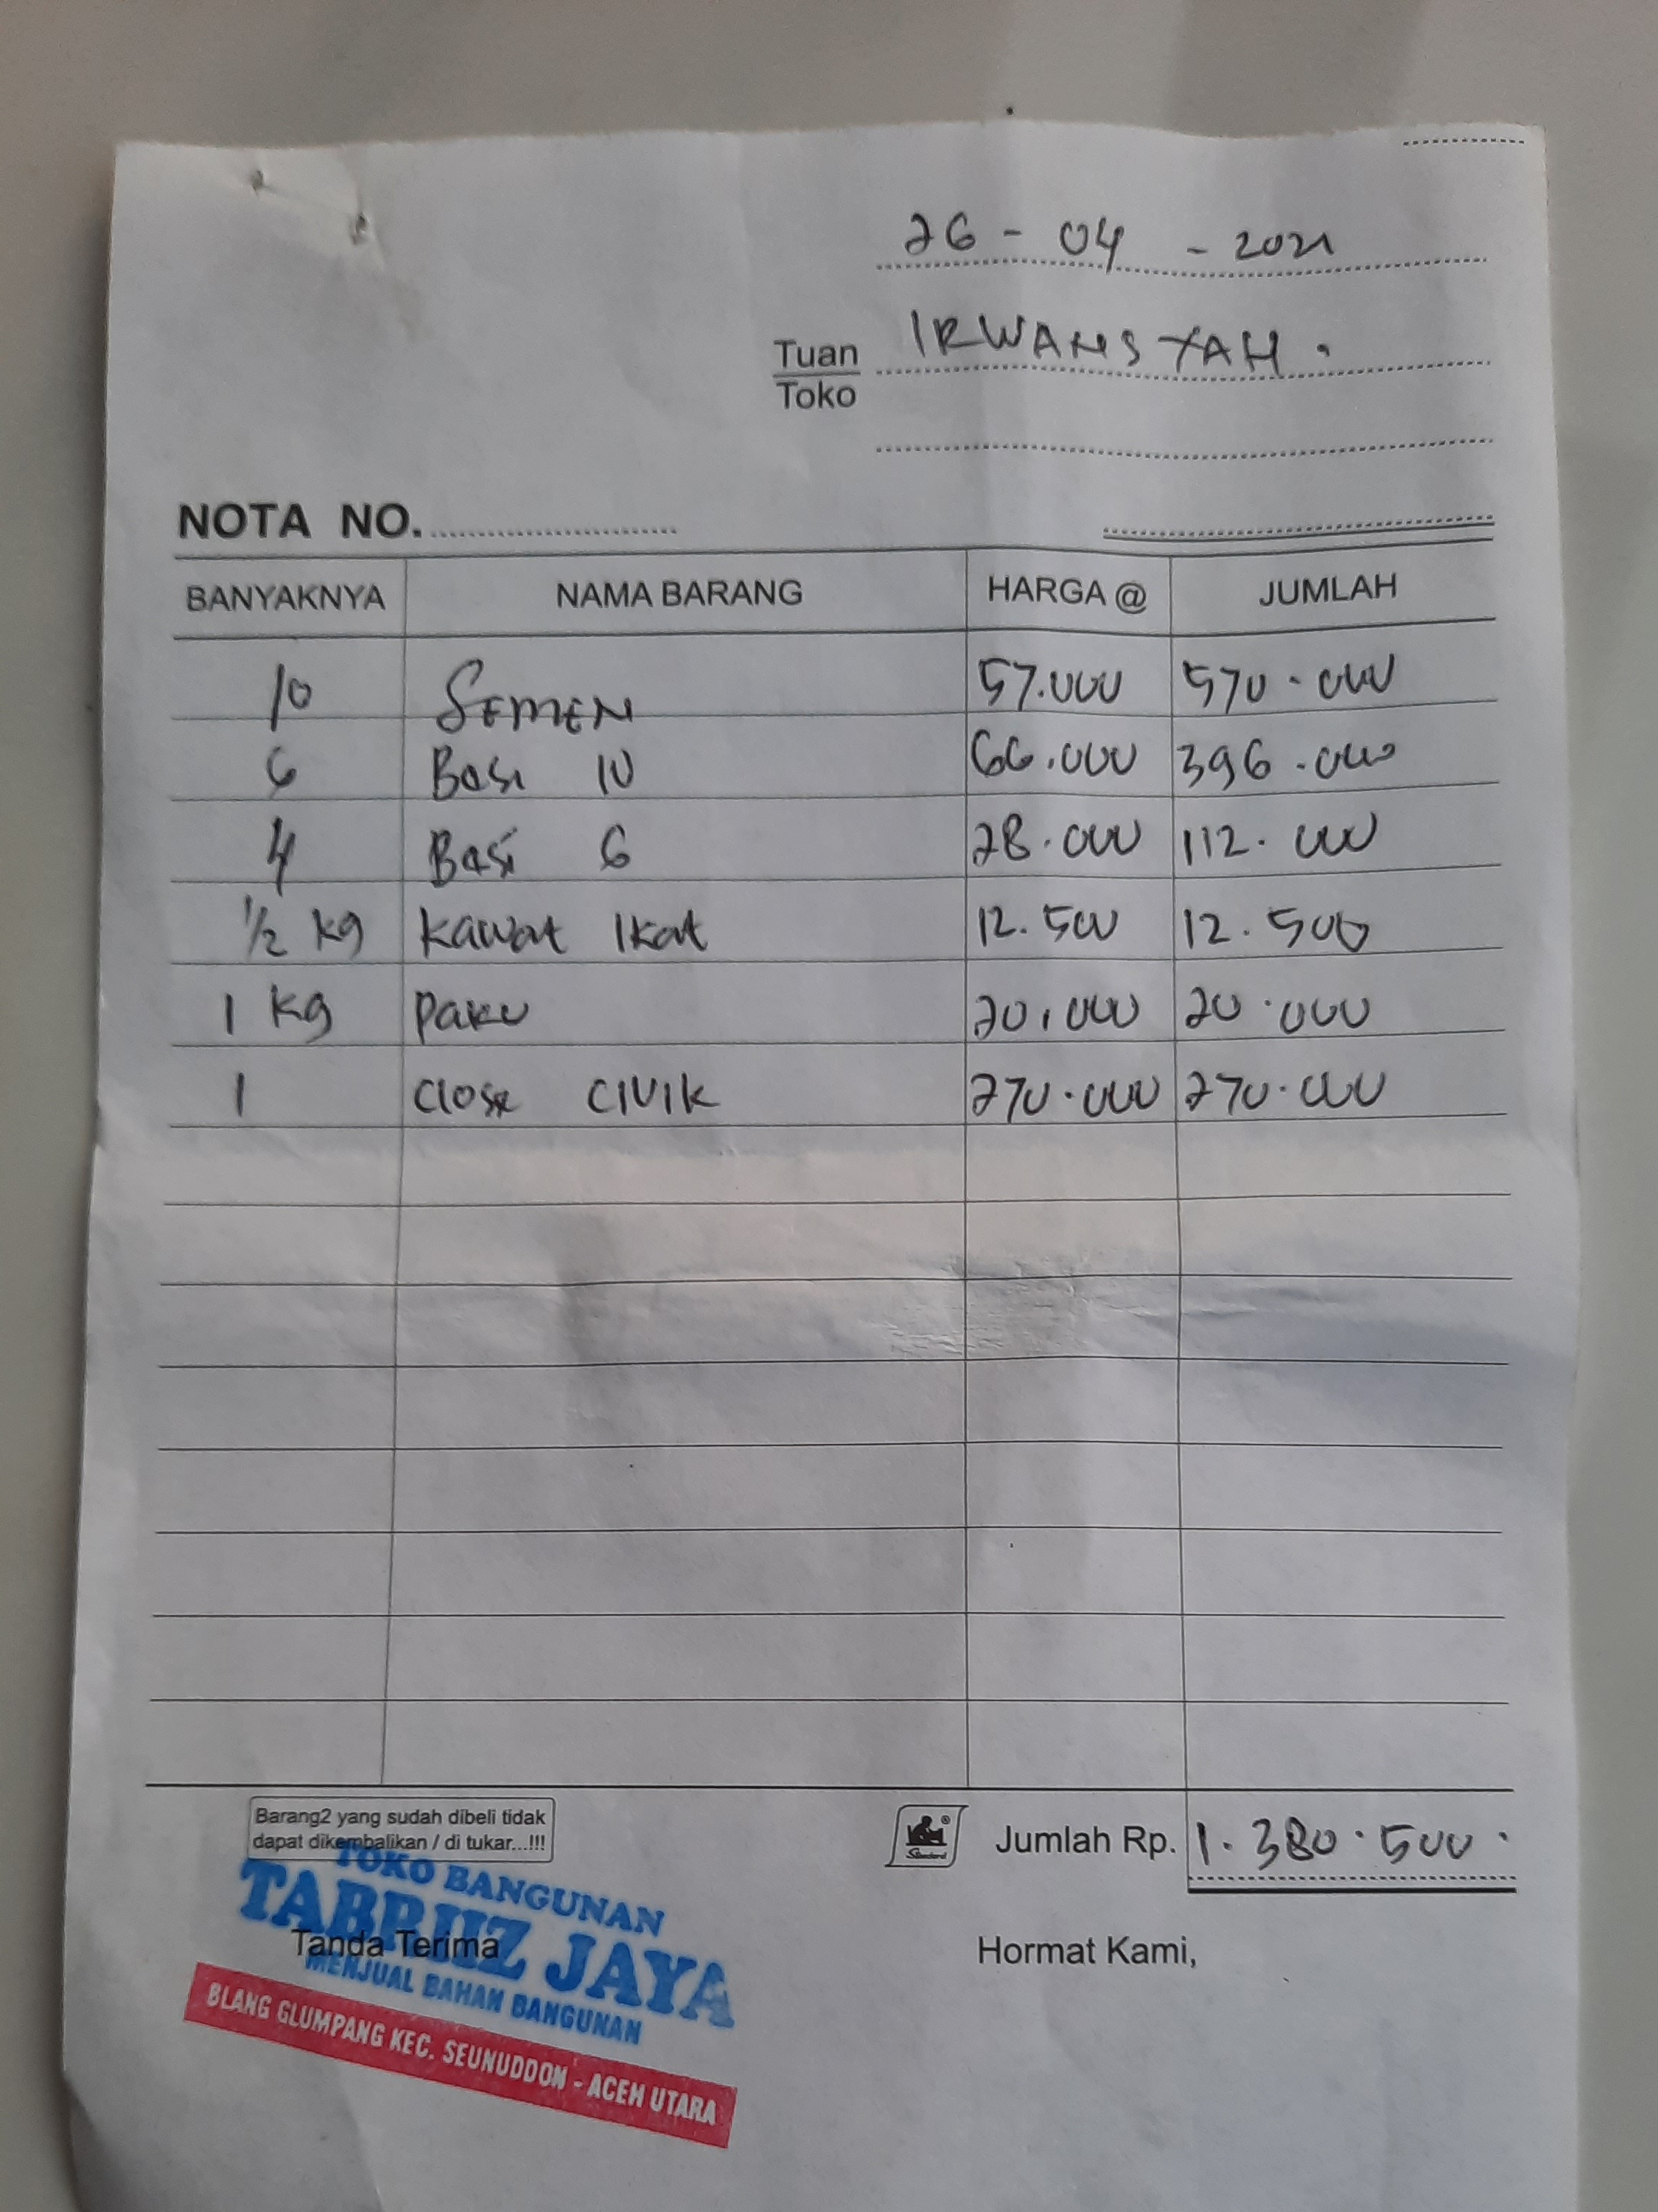 26 - 04 - 2021
Tuan IRWANSYAH.
Toko
NOTA NO.
BANYAKNYA NAMA BARANG HARGA @ JUMLAH
10 SEMEN 57.000 570.000
6 Basi 10 66.000 396.000
4 Basi 6 28.000 112.000
1/2 kg kawat Ikat 12.500 12.500
1 kg paku 20.000 20.000
1 Close CIVIK 270.000 270.000
Barang2 yang sudah dibeli tidak
dapat dikembalikan / di tukar...!!!
Standard
Jumlah Rp. 1.380.500.
TOKO BANGUNAN
TABRIIZ JAYA
Tanda Terima
Hormat Kami,
MENJUAL BAHAN BANGUNAN
BLANG GLUMPANG KEC. SEUNUDDON - ACEH UTARA